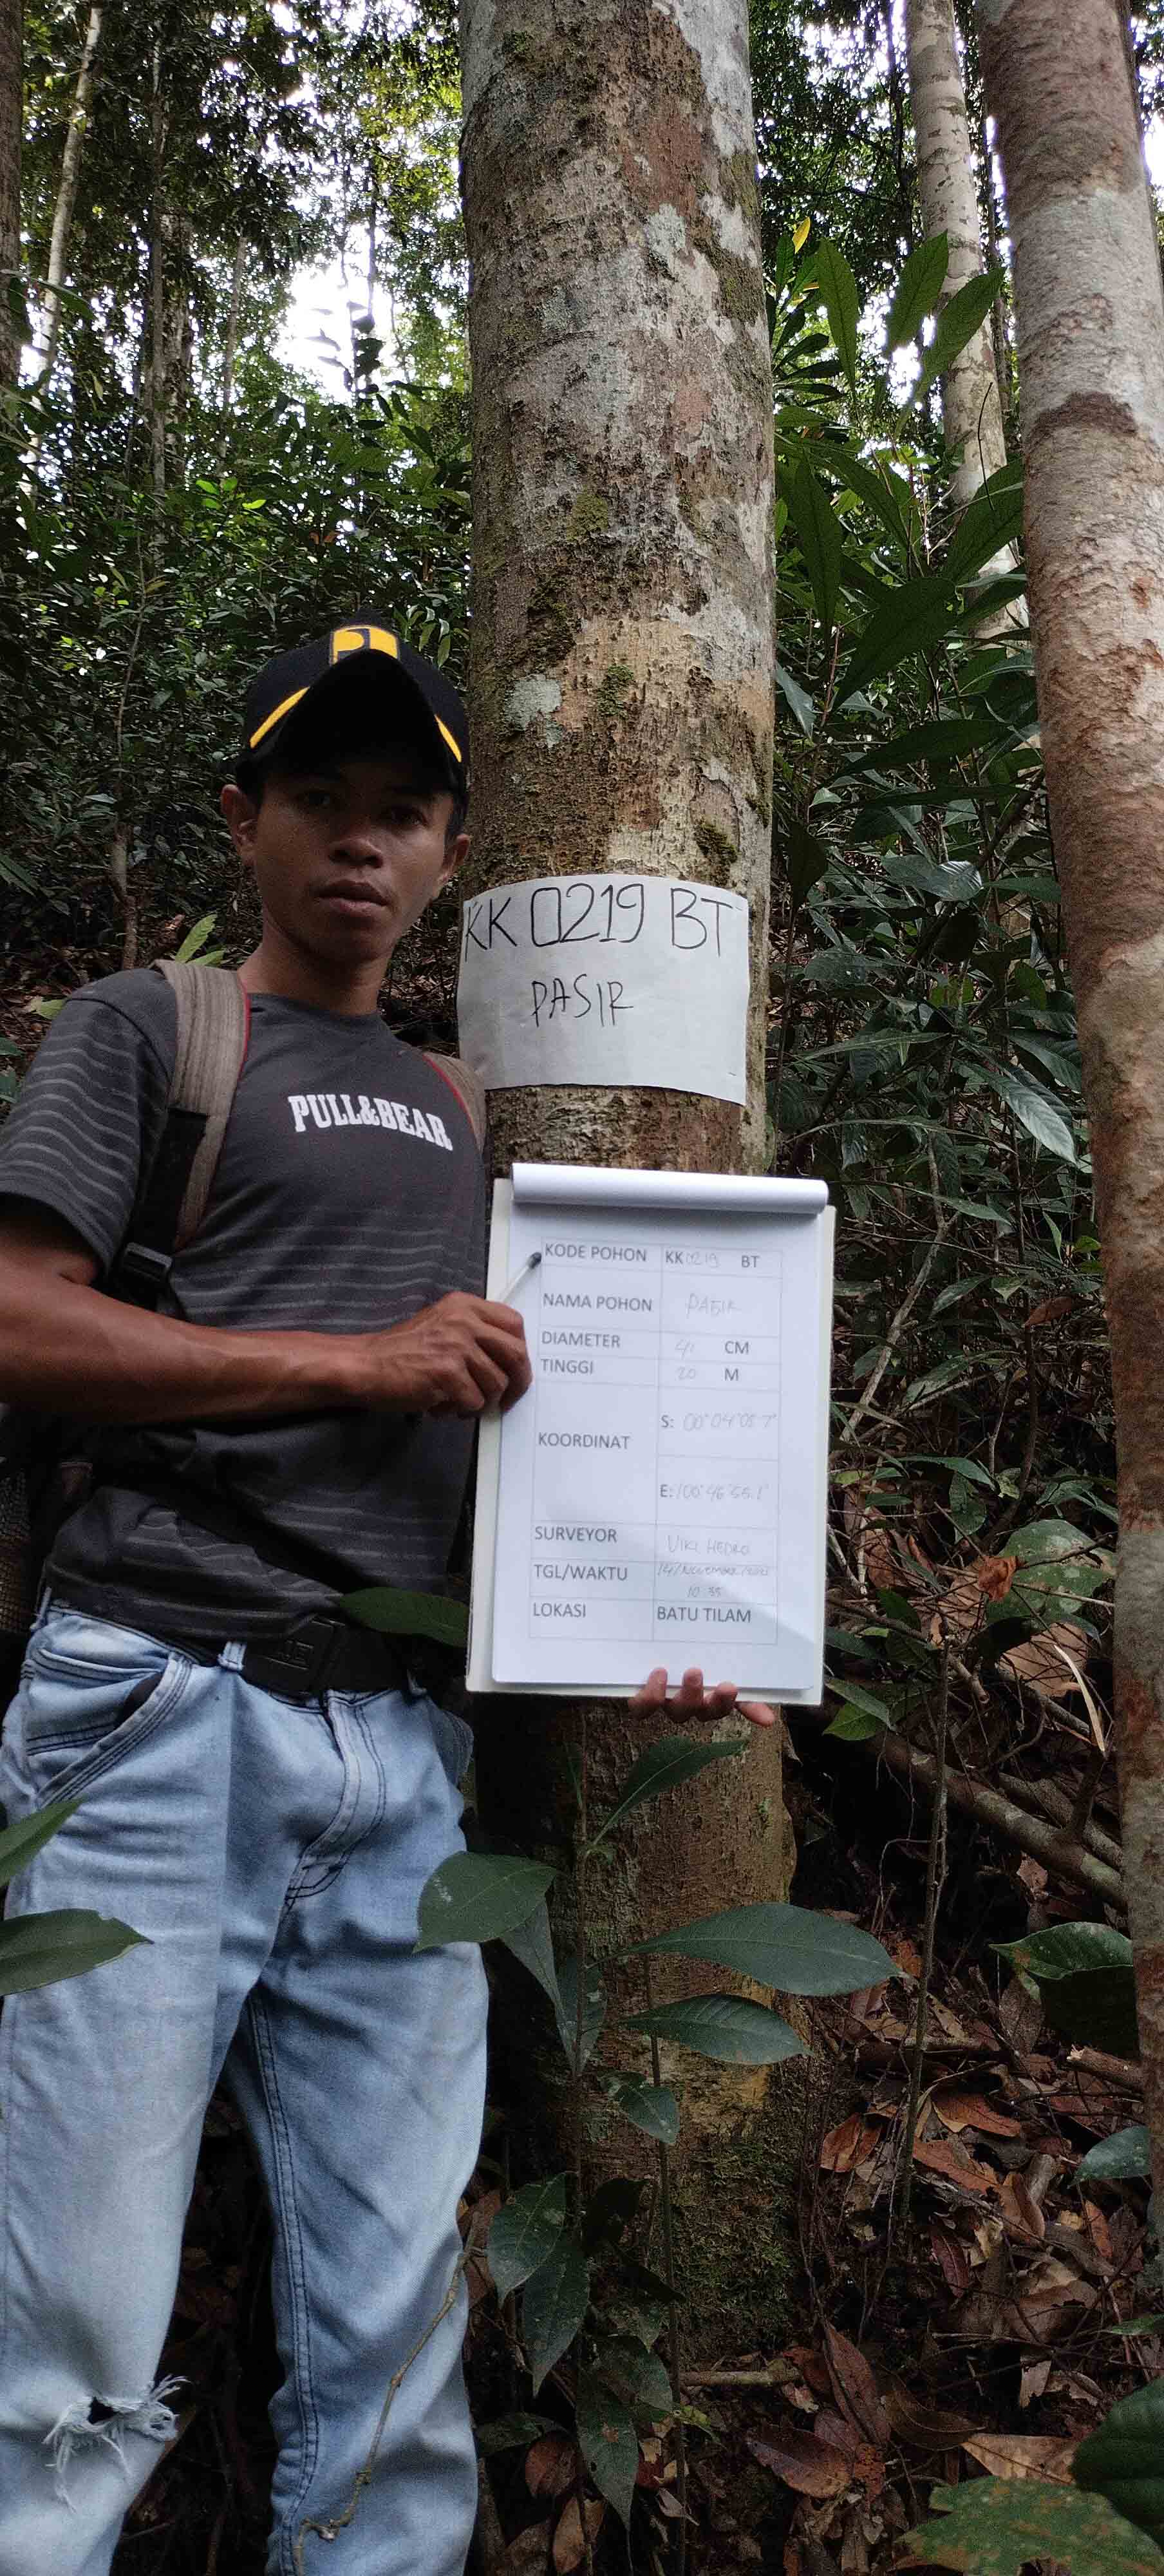 KK 0219 BT
PASIR
PULL&BEAR
KODE POHON KK 0219 BT
NAMA POHON PASIR
DIAMETER 41 CM
TINGGI 20 M
KOORDINAT
S: 00°04'05.7"
E: 100°46'55.1"
SURVEYOR VIKI HEDRO
TGL/WAKTU 14/November/
10:35
LOKASI BATU TILAM